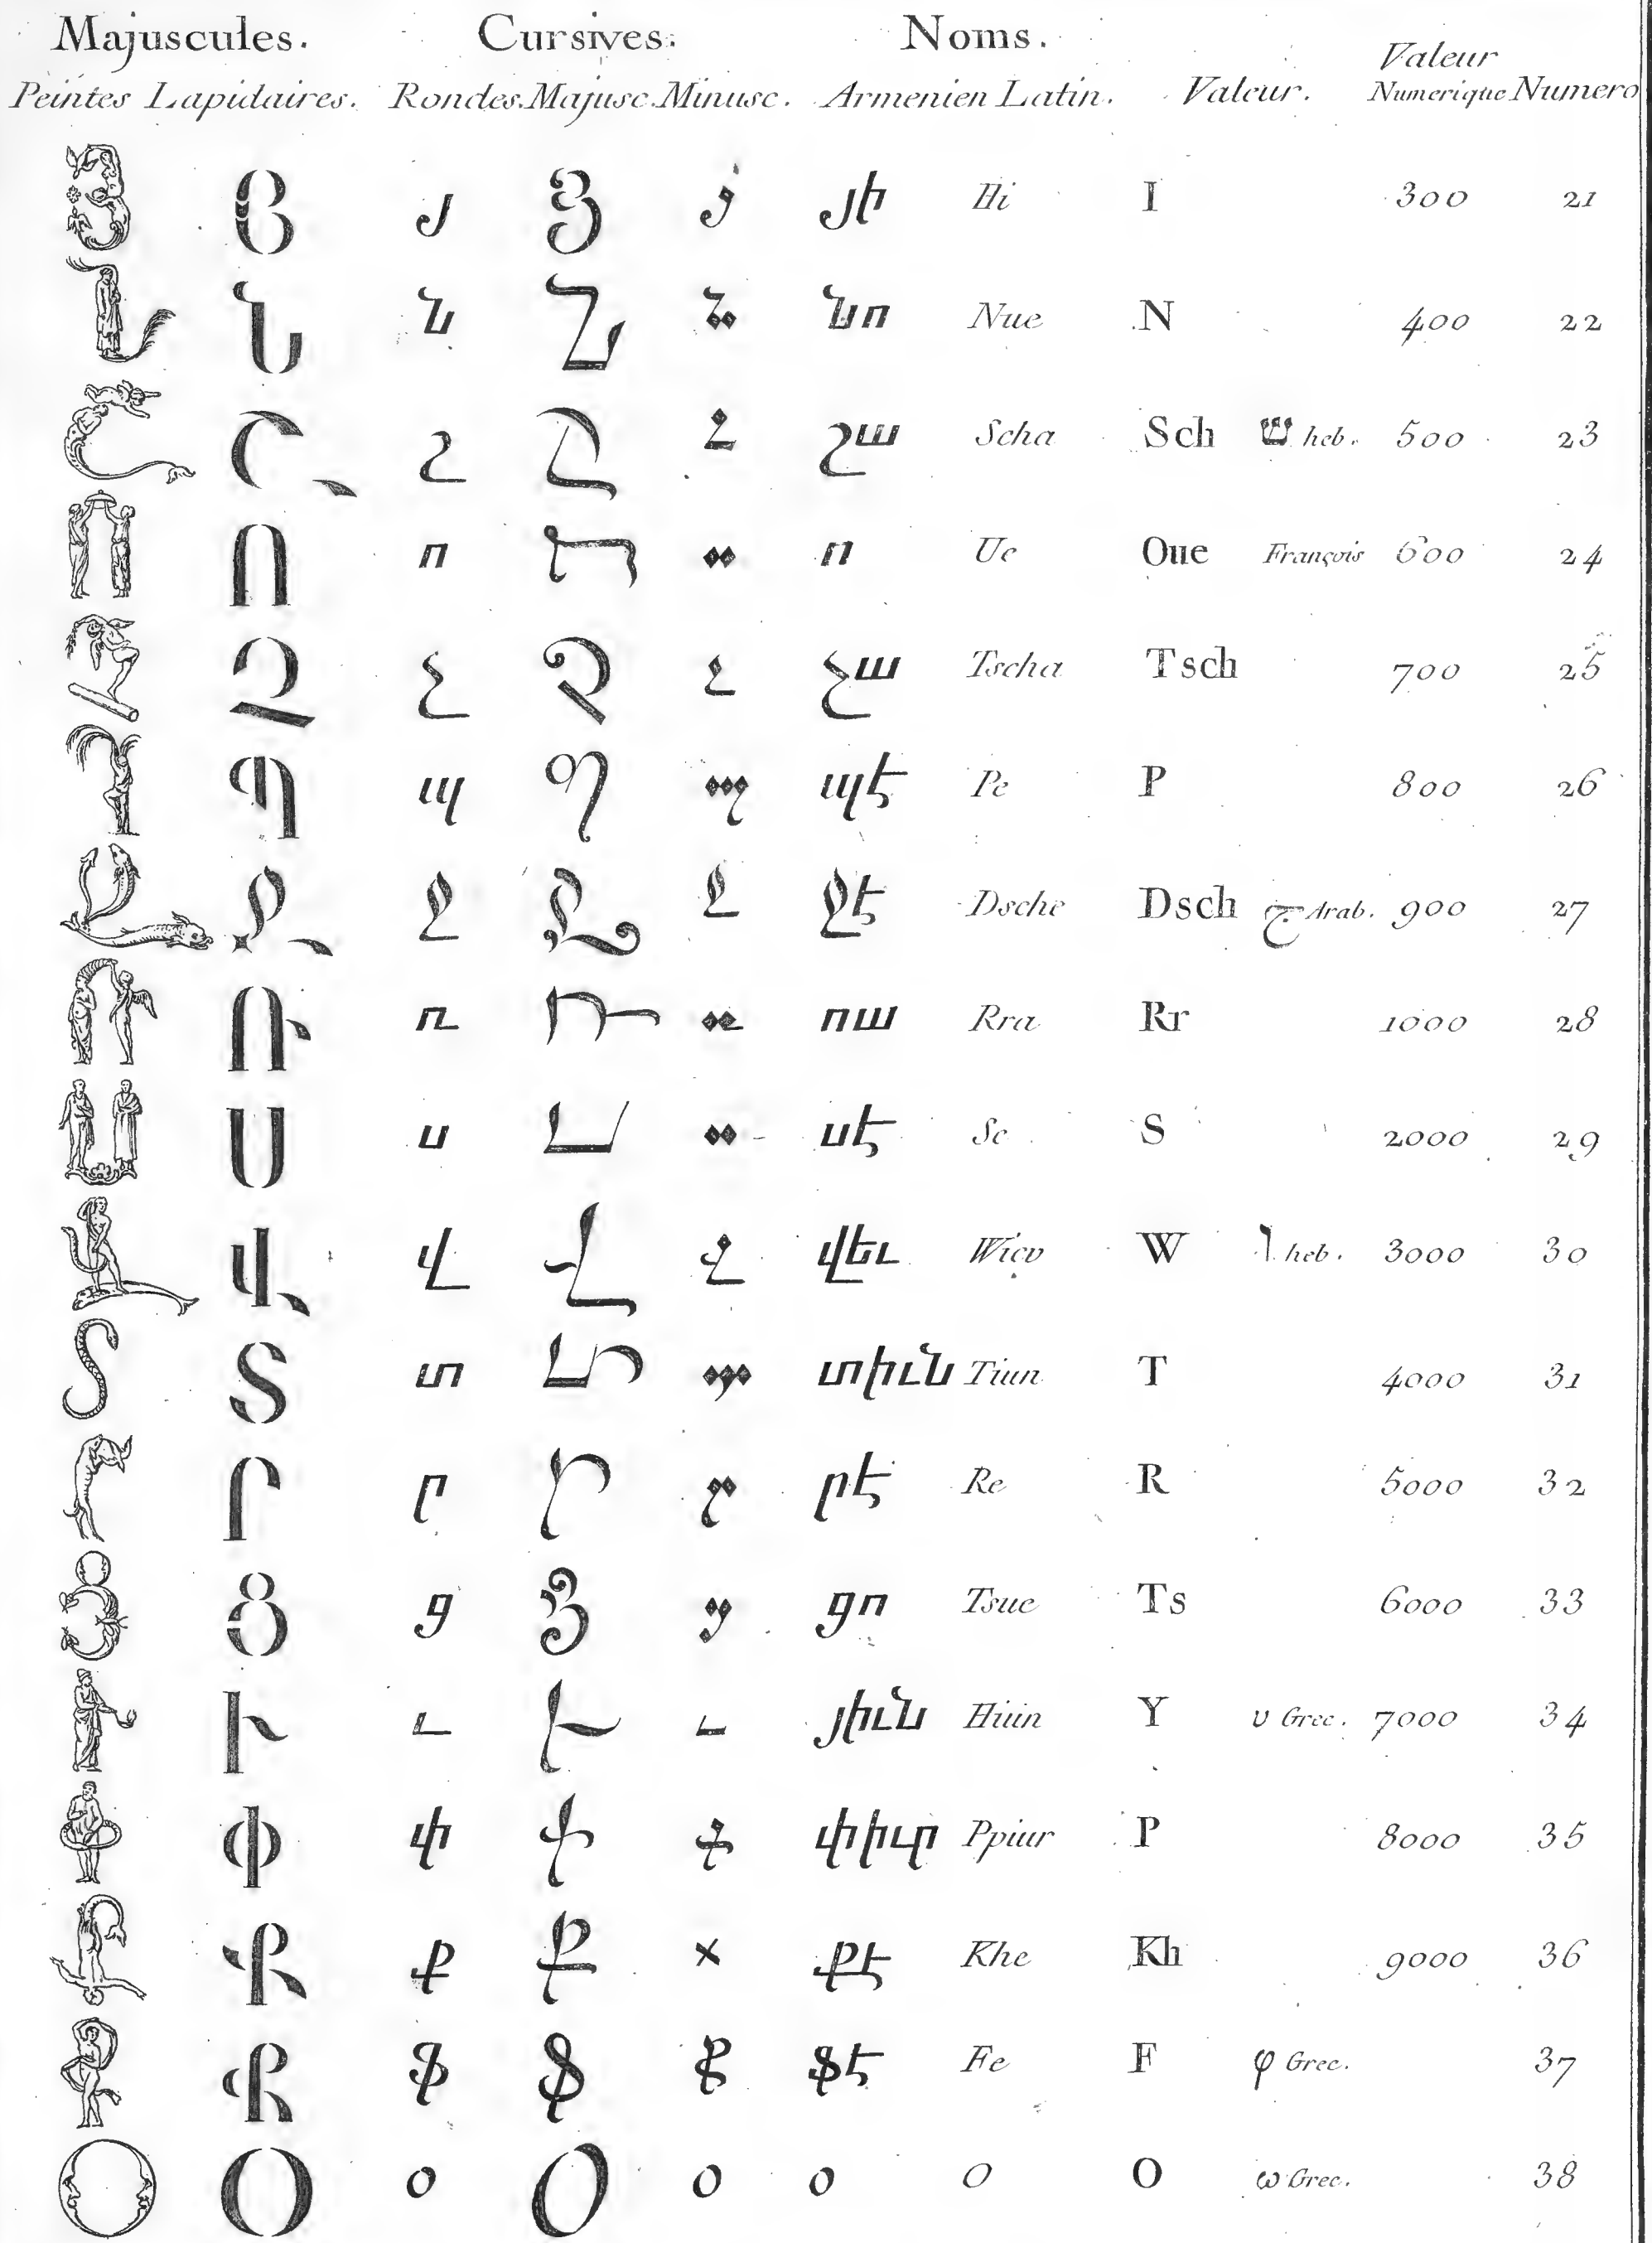 Majuscules. Cursives. Noms.
Peintes Lapidaires. Rondes. Majusc. Minusc. Armenien Latin. Valeur. Valeur Numerique Numero
Յ Յ յ Յ յ յի Hi I 300 21
Ն Ն ն Ն ն նո Nue N 400 22
Շ Շ շ Շ շ շա Scha Sch ש heb. 500 23
Ո Ո ո Ո ո ո Ue Oue François 600 24
Չ Չ չ Չ չ չա Tscha Tsch 700 25
Պ Պ պ Պ պ պէ Pe P 800 26
Ջ Ջ ջ Ջ ջ ջէ Dsche Dsch ج Arab. 900 27
Ռ Ռ ռ Ռ ռ ռա Rra Rr 1000 28
Ս Ս ս Ս ս սէ Se S 2000 29
Վ Վ վ Վ վ վեւ Wiev W ו heb. 3000 30
Տ Տ տ Տ տ տիւն Tiun T 4000 31
Ր Ր ր Ր ր րէ Re R 5000 32
Ց Ց ց Ց ց ցո Tsue Ts 6000 33
Ւ Ւ ւ Ւ ւ յիւն Hiun Y υ Grec. 7000 34
Փ Փ փ Փ փ փիւր Ppiur P 8000 35
Ք Ք ք Ք ք քէ Khe Kh 9000 36
Ֆ Ֆ ֆ Ֆ ֆ ֆէ Fe F φ Grec. 37
Օ Օ օ Օ օ օ O O ω Grec. 38